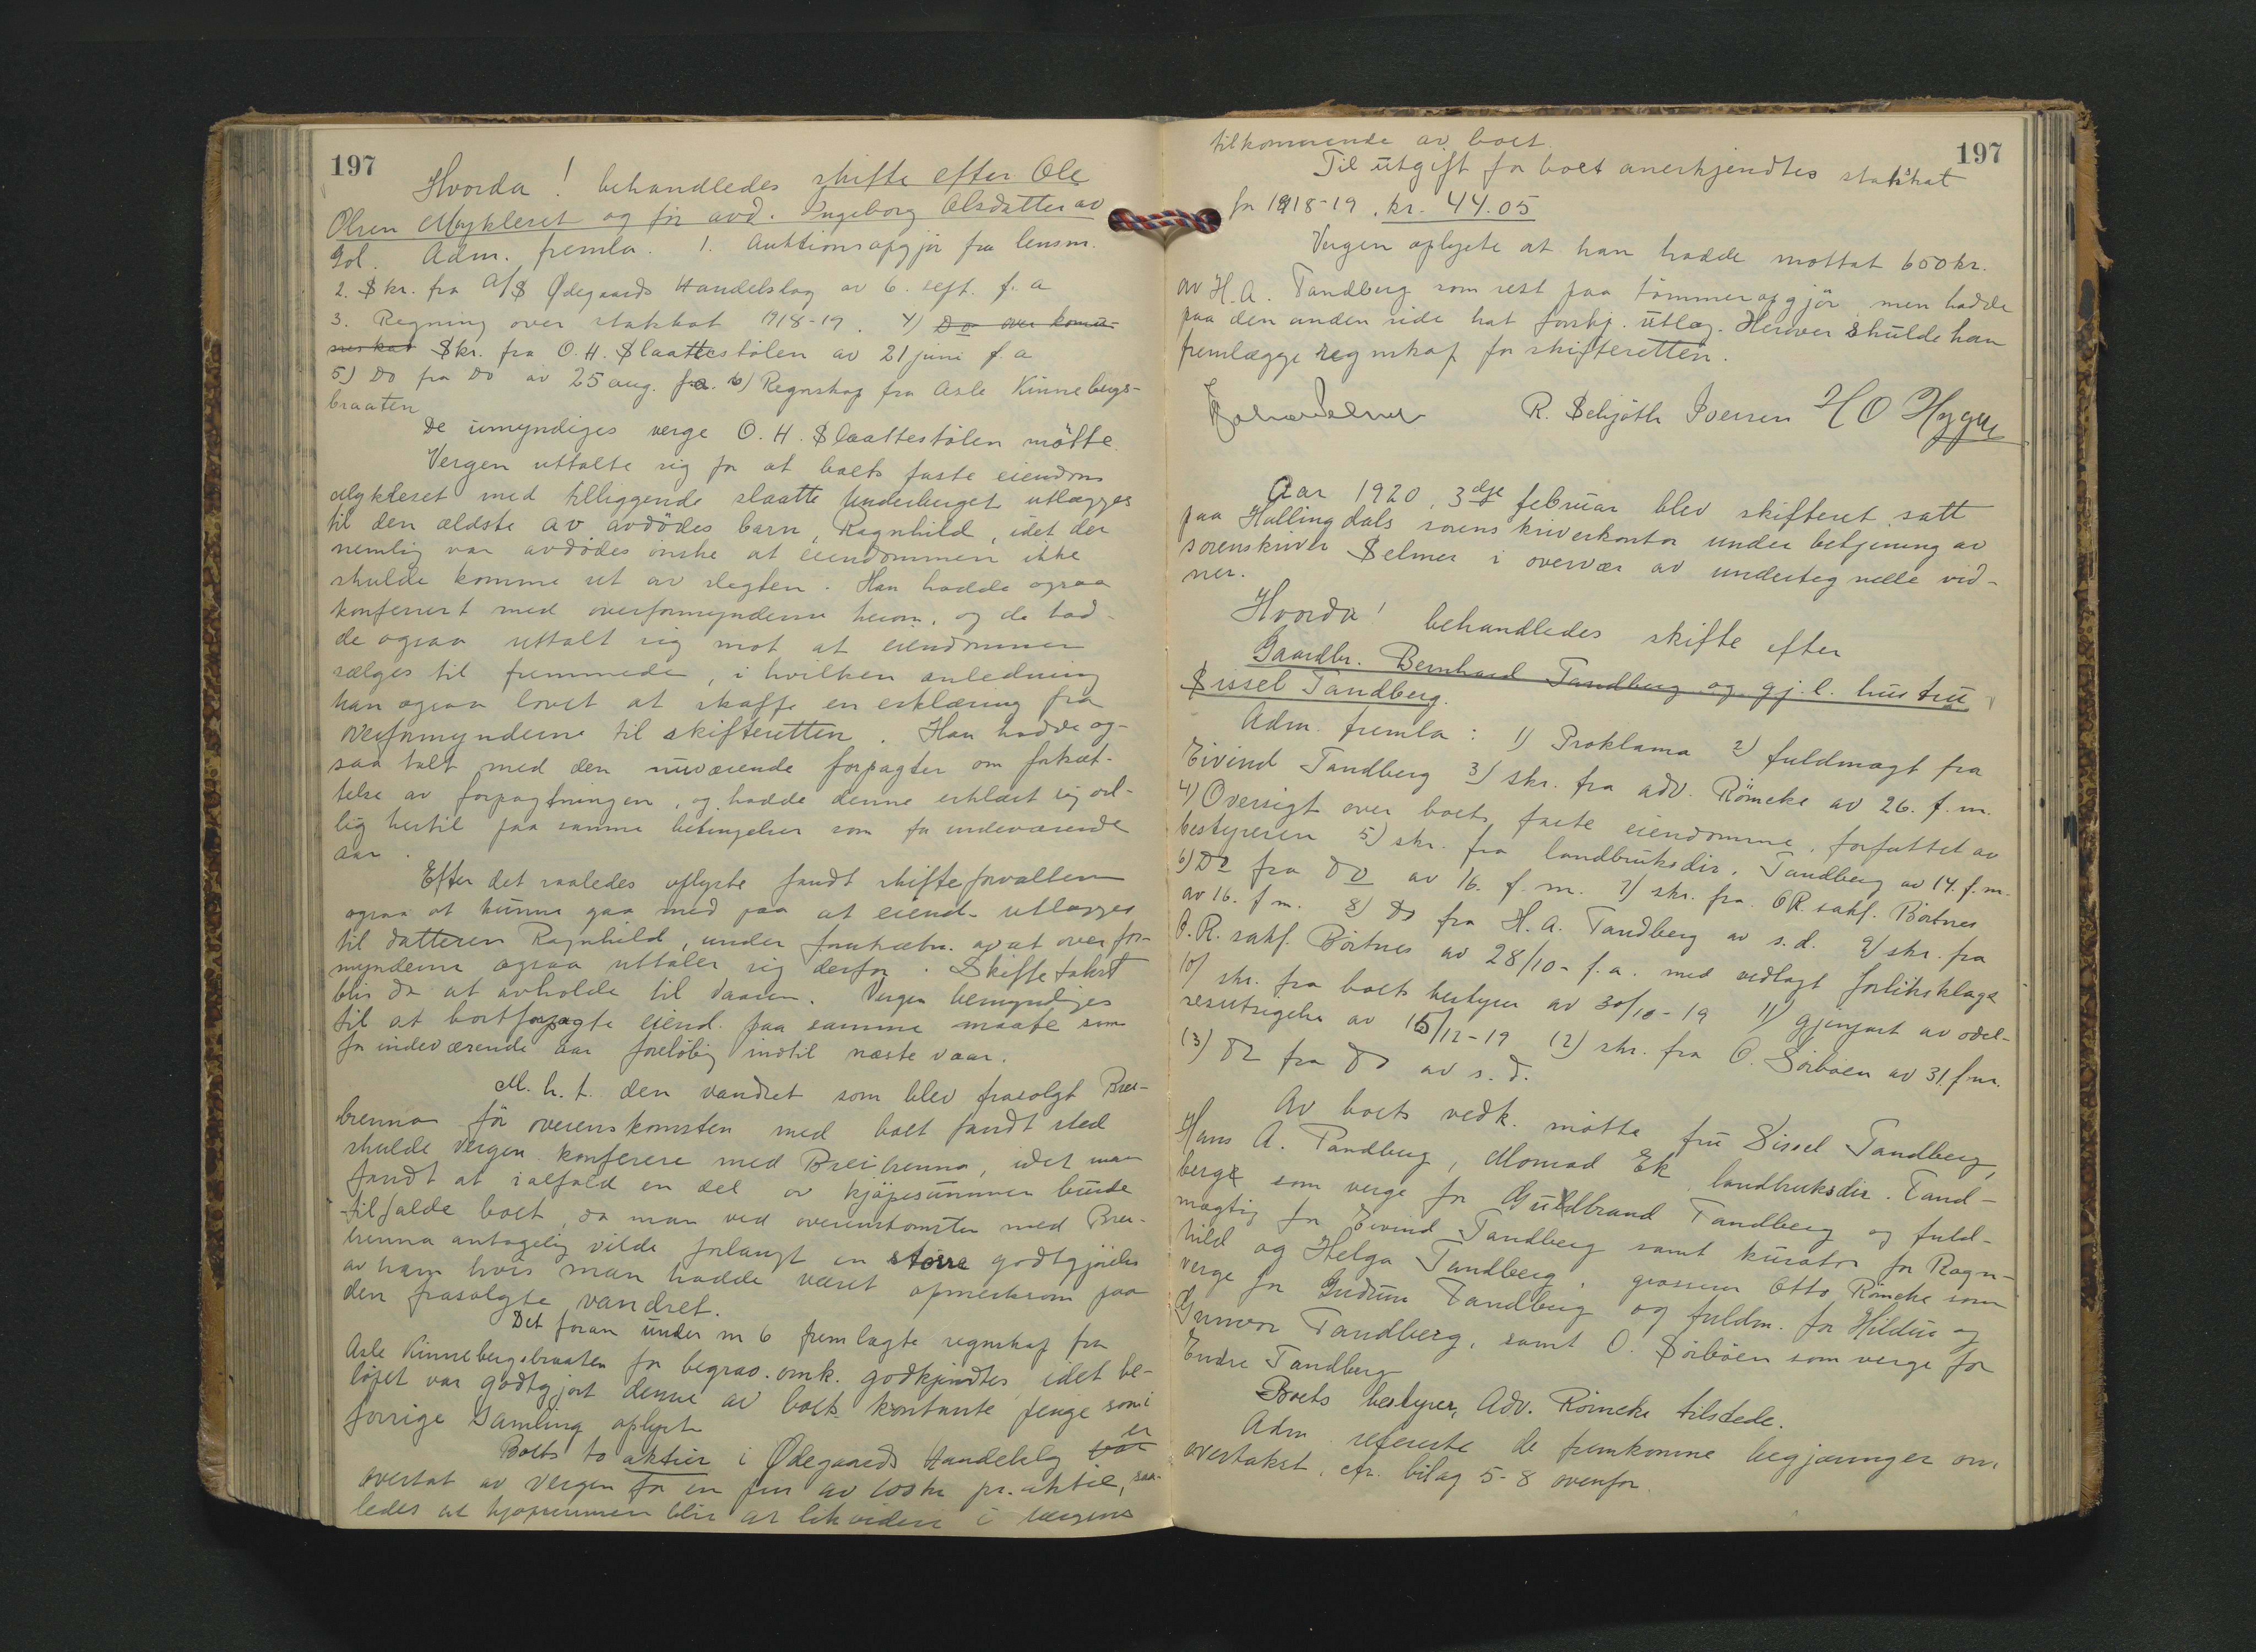 197
Hvorda! behandledes skifte efter Ole
Olsen Mykleset og før avd. Ingeborg Olsdatter av
Gol. Adm. fremla. 1. Auktionsopgjør fra lensm.
2. Skr. fra A/S Ødegaards Handelslag av 6. sept. f. a
3. Regning over statskat 1918-19. 4) Do over komu-
neskat Skr. fra O. H. Slaattestølen av 21 juni f. a
5) Do fra Do av 25 aug. f.a. 6) Regnskap fra Asle Kinnebergs-
braaten
De umyndiges verge O. H. Slaattestølen møtte.
Vergen uttalte sig for at boets faste eiendom
Mykleset med tilliggende slaatte Underberget utlægges
til den ældste av avdødes barn, Ragnhild, idet det
nemlig var avdødes ønske at eiendommen ikke
skulde komme ut av slegten. Han hadde ogsaa
konferert med overformynderne herom, og de had-
de ogsaa uttalt sig mot at eiendommen
sælges til fremmede, i hvilken anledning
han ogsaa lovet at skaffe en erklæring fra
overformynderne til skifteretten. Han hadde og-
saa talt med den nuværende forpagter om fortsæt-
telse av forpagtningen, og hadde denne erklært sig vil-
lig hertil paa samme betingelser som for indeværende
aar.
Efter det saaledes oplyste fandt skifteforvalteren
ogsaa at kunne gaa med paa at eiend. utlægges
til datteren Ragnhild, under forutsætn. av at overfor-
mynderne ogsaa uttaler sig derfor. Skiftetakst
blir da at avholde til vaaren. Vergen bemyndiges
til at bortforpagte eiend. paa samme maate som
for indeværende aar foreløbig indtil næste vaar.
M. h. t. den vandret som blev frasolgt Brei-
brenna før overenskomsten med boet fandt sted
skulde vergen konferere med Breibrenna, idet man
fandt at ialfald en del av kjøpesummen burde
tilfalde boet, da man ved overenskomsten med Brei-
brenna antagelig vilde forlangt en større godtgjørelse
av ham hvis man hadde været opmerksom paa
den frasolgte vandret.
Det foran under nr 6 fremlagte regnskap fra
Asle Kinnebergsbraaten for begrav. omk. godkjendtes, idet be-
løpet var godtgjort denne av boets kontante penge som i
forrige samling oplyst
Boets to aktier i Ødegaards Handelslag var er
overtat av vergen for en pris av 100 kr pr. aktie, saa-
ledes at kjøpesummen blir at likvidere i vergens
197
tilkommende av boet.
Til utgift for boet anerkjendtes statskat
for 1918-19, kr. 44.05
Vergen oplyste at han hadde mottat 650 kr.
av H. A. Tandberg som rest paa tømmeropgjør men hadde
paa den anden side hat forskj. utlæg. Herover skulde han
fremlægge regnskap for skifteretten.
R. Schjøth Iversen H O Hygge
Aar 1920, 3dje februar blev skifteret satt
paa Hallingdals sorenskriverkontor under betjening av
sorenskriver Selmer i overvær av undertegnede vid-
ner.
Hvorda! behandledes skifte efter
Gaardbr. Bernhard Tandberg og gj.l. hustru
Sissel Tandberg.
Adm. fremla: 1) Proklama 2) fuldmagt fra
Eivind Tandberg 3) skr. fra adv. Rømcke av 26. f. m.
4) Oversigt over boets faste eiendomme, forfattet av
bestyreren 5) skr. fra landbruksdir. Tandberg av 14. f. m.
6) Do fra Do av 16. f. m. 7) skr. fra O.R. sakf. Børtnes
av 16. f m. 8) Do fra H. A. Tandberg av s. d. 9) skr. fra
O.R. sakf. Børtnes av 28/10- f. a. med vedlagt forliksklage
10) skr. fra boets bestyrer av 30/10-19 11) gjenpart av odel-
resutsigelse av 15/12-19 12) skr. fra O. Sørbøen av 31. f.m.
13) Do fra Do av s. d.
Av boets vedk. møtte fru Sissel Tandberg,
Hans A. Tandberg, Monrad Ek, landbruksdir. Tand-
berg som verge for Guldbrand Tandberg og fuld-
mægtig for Eivind Tandberg samt kurator for Ragn-
hild og Helga Tandberg, grosserer Otto Rømcke som
verge for Gudrun Tandberg og fuldm. for Hildur og
Gunvor Tandberg, samt O. Sørbøen som verge for
Endre Tandberg
Boets bestyrer, Adv. Rømcke tilstede.
Adm. refererte de fremkomne begjæringer om
overtakst, cfr. bilag 5-8 ovenfor.